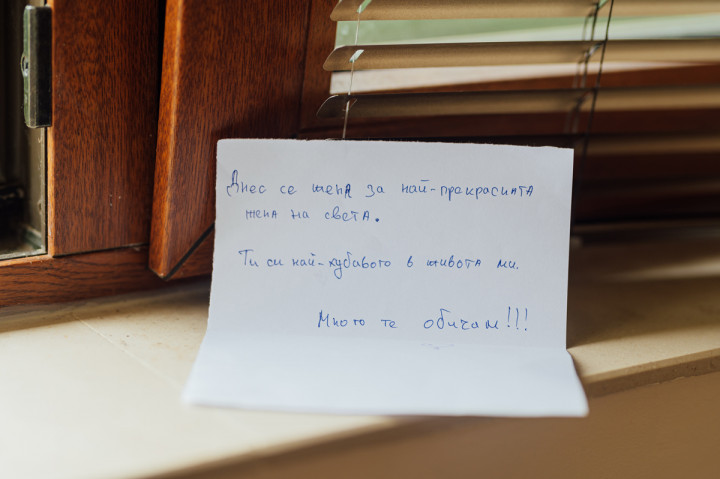 Днес се женя за най-прекрасната
жена на света.
Ти си най-хубавото в живота ми.
Много те обичам!!!